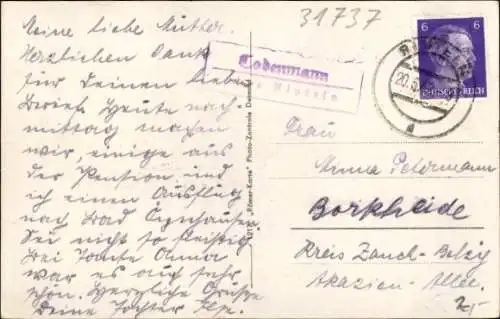 31737
Meine liebe Mutter.
Herzlichen Dank
für Deinen lieben
Brief. Heute nach-
mittag machen
wir, einige aus
der Pension und
ich einen Ausflug
nach Bad Oynhausen
Sei nicht so fleissig
bei Tante Anna
war es auch sehr
schön. Herzliche Grüße
Deine Tochter
Todenmann
Rinteln
6 6
DEUTSCHES REICH
20.
a
Frau
Minna Petermann
Borkheide
Kreis Zauch-Belzig
Akazien-Allee.
"Römer-Karte" Photo-Zentrale